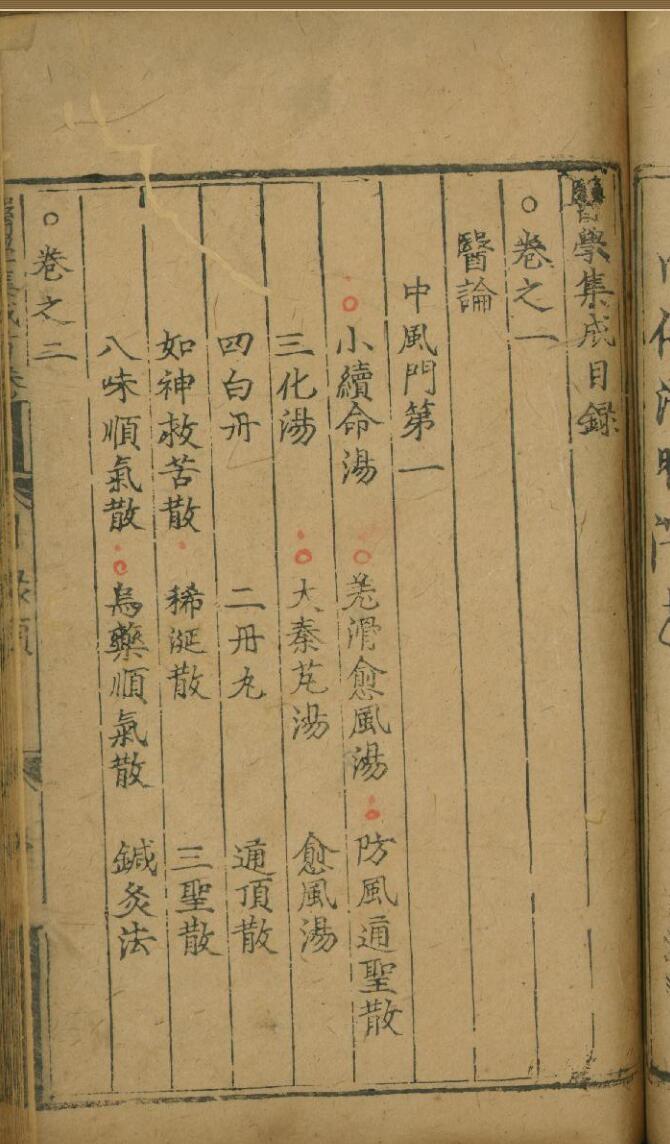 醫學集成目録
○卷之一
醫論
中風門第一
小續命湯　羗滑愈風湯　防風通聖散
三化湯　大秦芃湯　愈風湯
四白丹　二丹丸　通頂散
如神救苦散　稀涎散　三聖散
八味順氣散　烏藥順氣散　鍼灸法
○卷之二